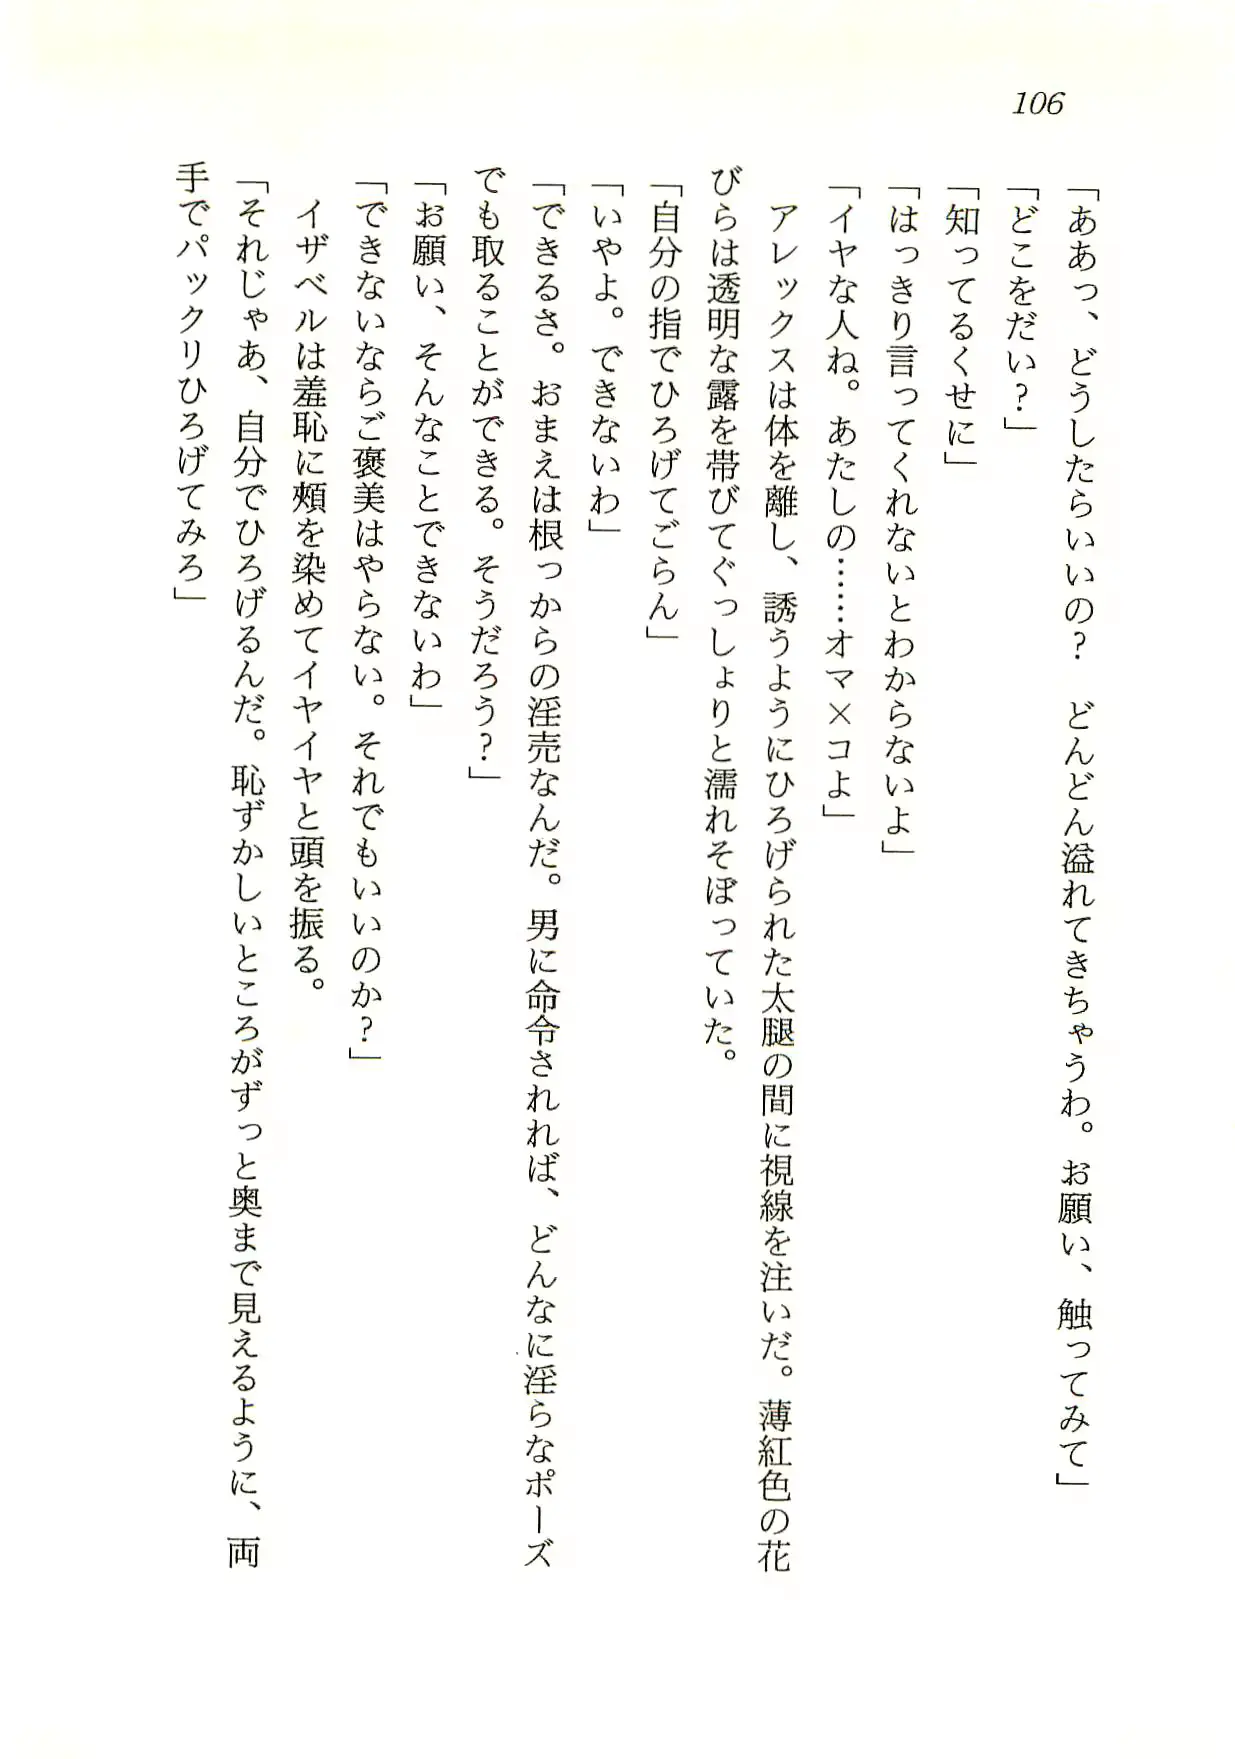 106
「ああっ、どうしたらいいの？　どんどん溢れてきちゃうわ。お願い、触ってみて」
「どこをだい？」
「知ってるくせに」
「はっきり言ってくれないとわからないよ」
「イヤな人ね。あたしの……オマ×コよ」
　アレックスは体を離し、誘うようにひろげられた太腿の間に視線を注いだ。薄紅色の花
びらは透明な露を帯びてぐっしょりと濡れそぼっていた。
「自分の指でひろげてごらん」
「いやよ。できないわ」
「できるさ。おまえは根っからの淫売なんだ。男に命令されれば、どんなに淫らなポーズ
でも取ることができる。そうだろう？」
「お願い、そんなことできないわ」
「できないならご褒美はやらない。それでもいいのか？」
　イザベルは羞恥に頬を染めてイヤイヤと頭を振る。
「それじゃあ、自分でひろげるんだ。恥ずかしいところがずっと奥まで見えるように、両
手でパックリひろげてみろ」